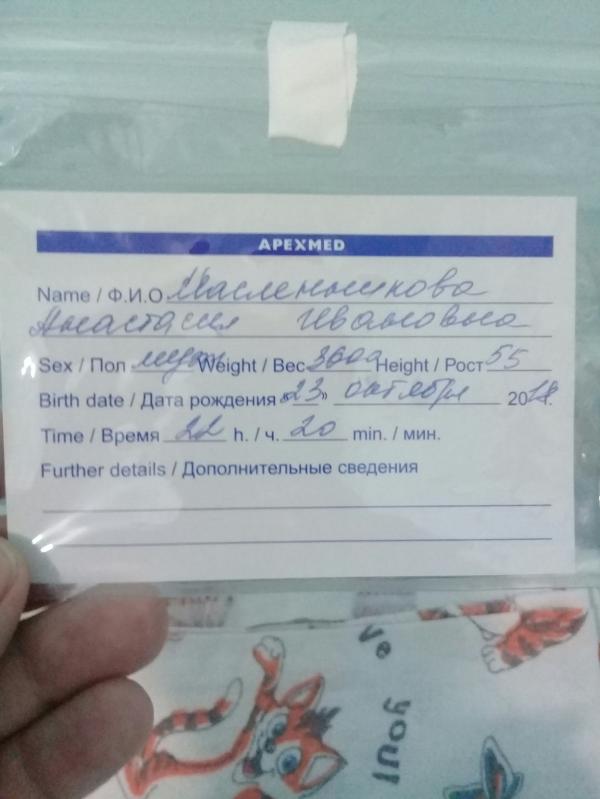 APEXMED
Name / Ф.И.О Масленникова
Анастасия Ивановна
Sex / Пол муж Weight / Вес 3600 Height / Рост 55
Birth date / Дата рождения «23» октября 2018.
Time / Время 22 h. / ч. 20 min. / мин.
Further details / Дополнительные сведения
ve you!